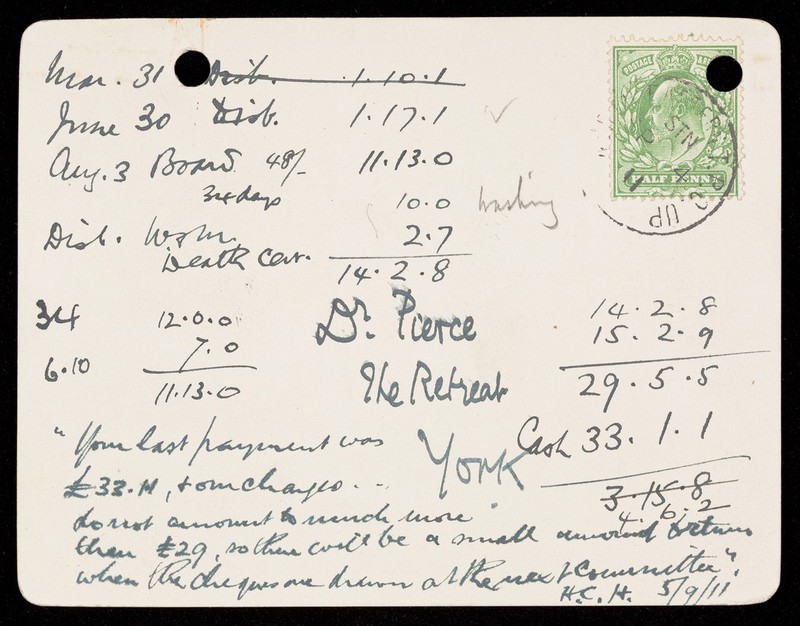 Mar. 31 Disb. 1.10.1
June 30 Disb. 1.17.1
Aug. 3 Board 48/- 11.13.0
34 days 10.0 washing
Disb. 2.7
Death Cer.
14.2.8
34 12.0.0
6.10 7.0
11.13.0
Dr. Pierce
The Retreat
York
14.2.8
15.2.9
29.5.5
Cash 33.1.1
3.15.8
4.6.2
"Your last payment was
£33.11, & our charges ...
do not amount to much more
than £29, so there will be a small amount to return
when the cheques are drawn at the next Committee".
H.C.H. 5/9/11
POSTAGE
HALF PENNY
STN
UP
11